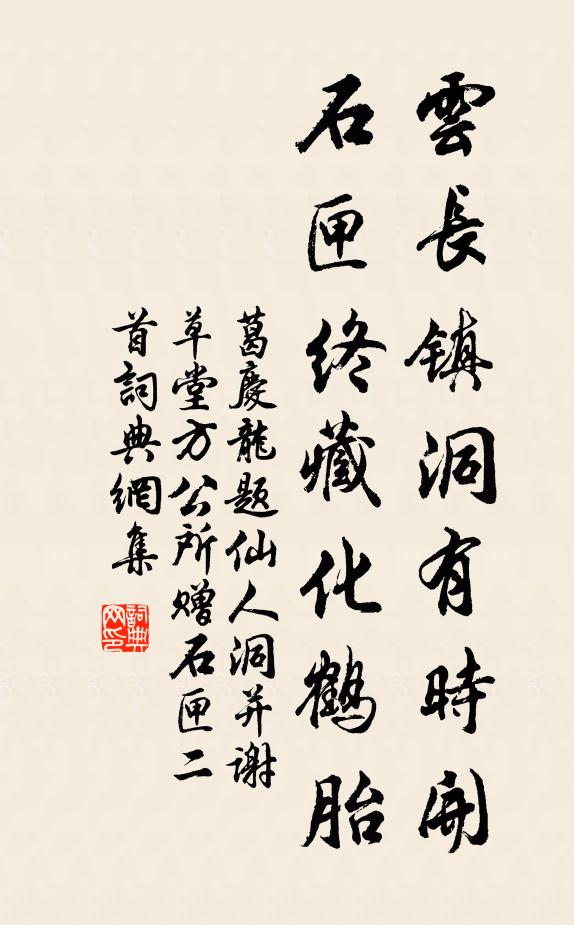 雲長鎮洞有時開
石匣終藏化鶴胎
葛慶龍題仙人洞并謝
草堂方公所贈石匣二
首詞典網集
詞典
网印